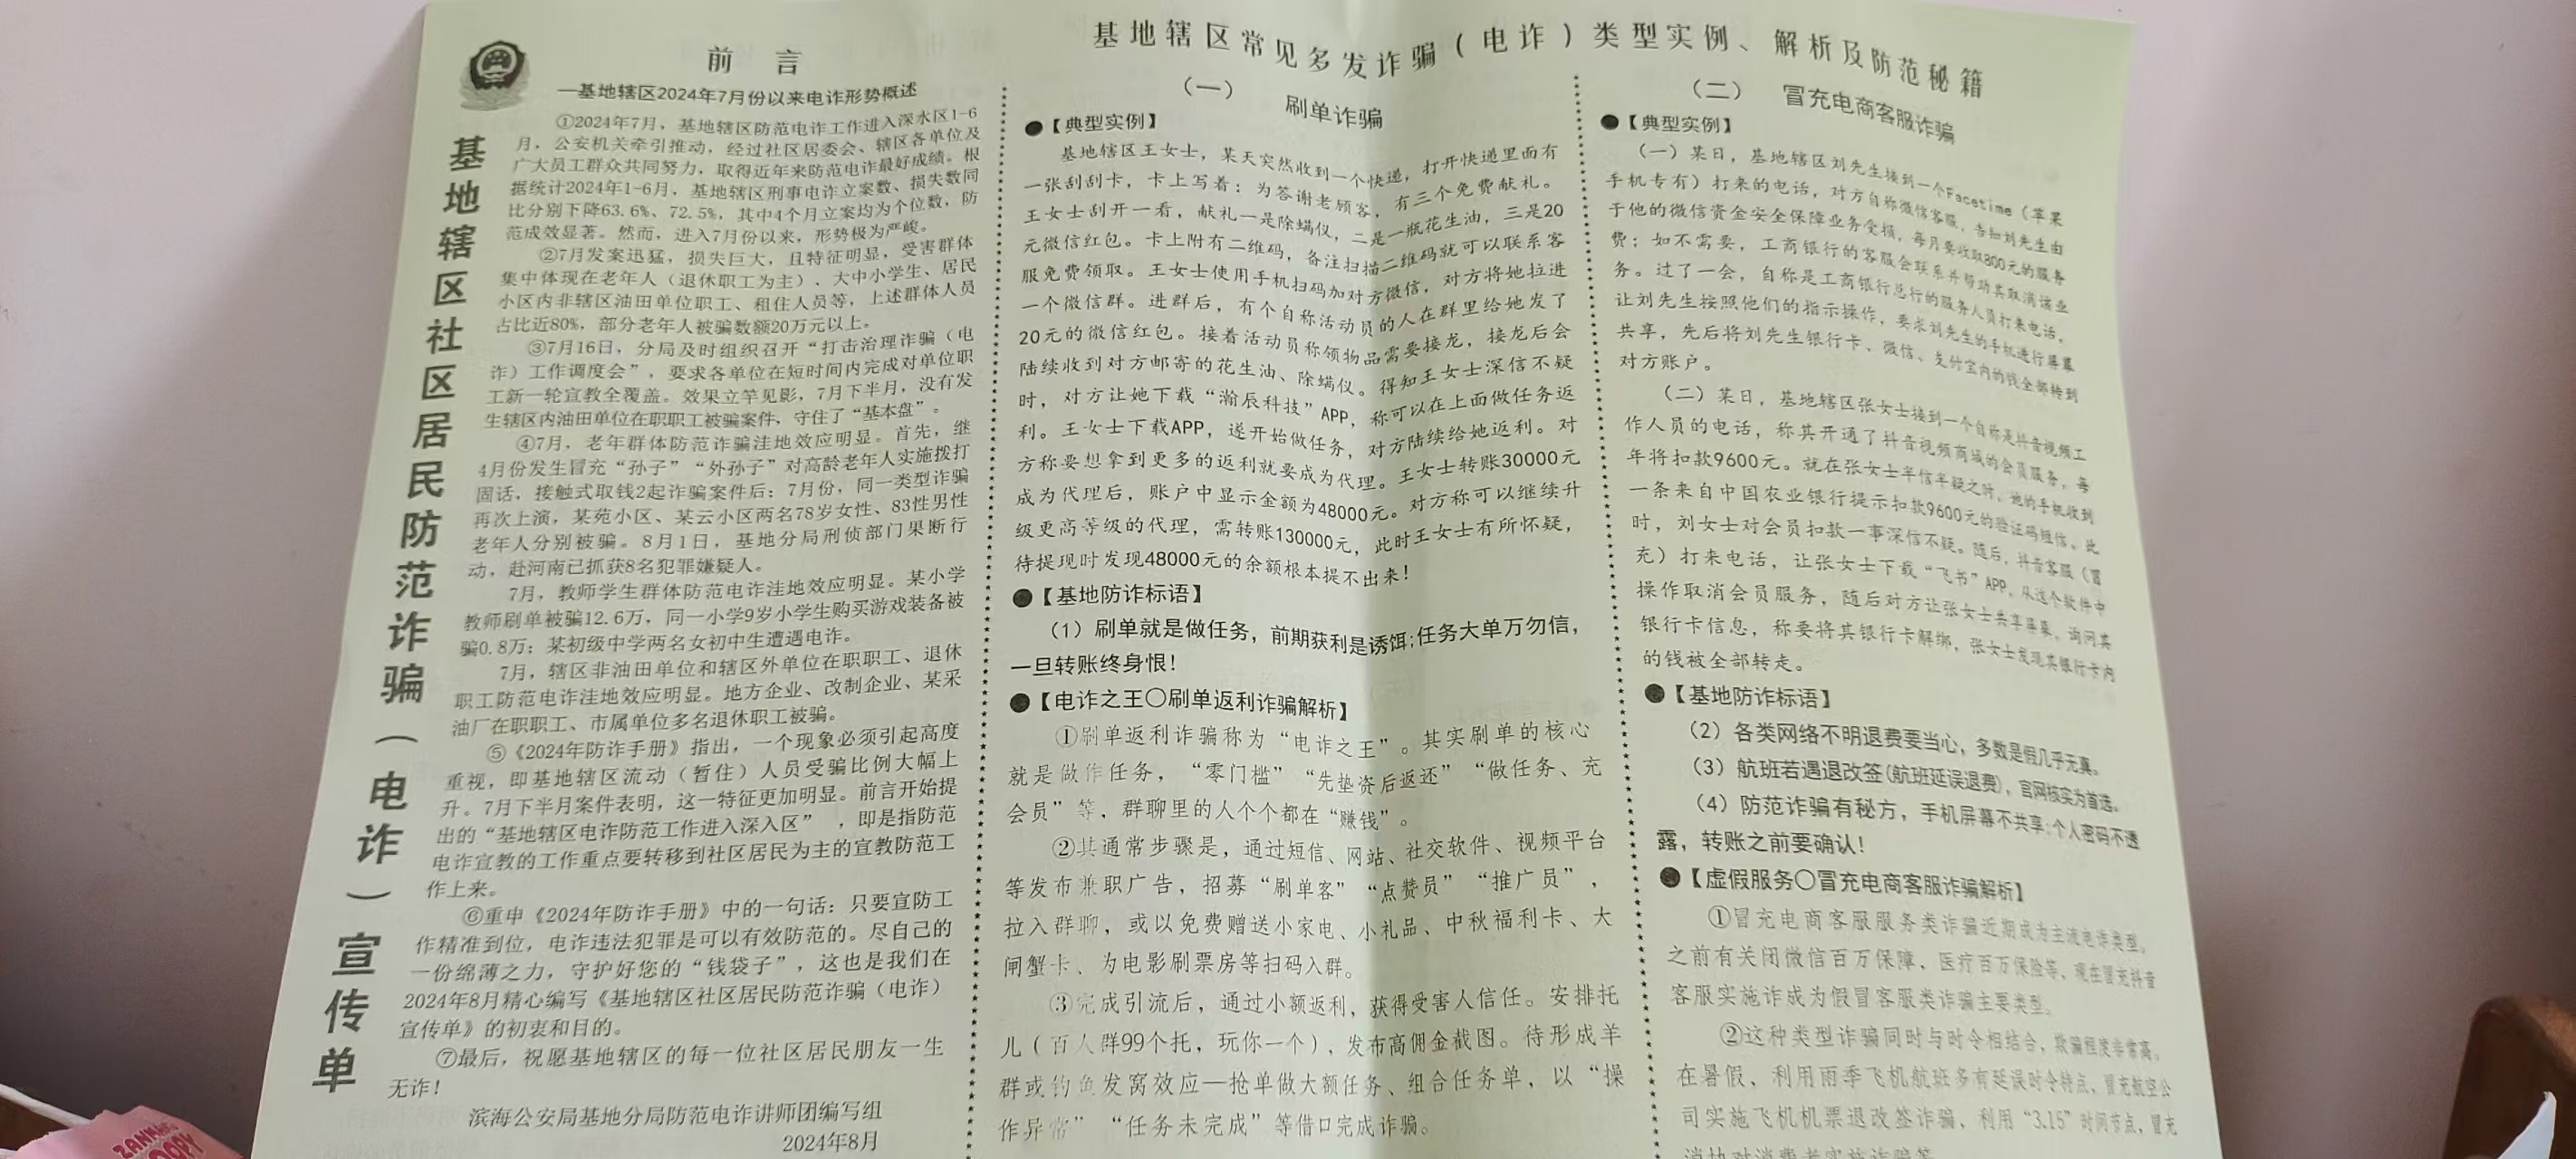 基地辖区社区居民防范诈骗（电诈）宣传单
前 言
—基地辖区2024年7月份以来电诈形势概述
①2024年7月，基地辖区防范电诈工作进入深水区1-6
月，公安机关牵引推动，经过社区居委会、辖区各单位及
广大员工群众共同努力，取得近年来防范电诈最好成绩。根
据统计2024年1-6月，基地辖区刑事电诈立案数、损失数同
比分别下降63.6%、72.5%，其中4个月立案均为个位数，防
范成效显著。然而，进入7月份以来，形势极为严峻。
②7月发案迅猛，损失巨大，且特征明显，受害群体
集中体现在老年人（退休职工为主）、大中小学生、居民
小区内非辖区油田单位职工、租住人员等，上述群体人员
占比近80%，部分老年人被骗数额20万元以上。
③7月16日，分局及时组织召开“打击治理诈骗（电
诈）工作调度会”，要求各单位在短时间内完成对单位职
工新一轮宣教全覆盖。效果立竿见影，7月下半月，没有发
生辖区内油田单位在职职工被骗案件，守住了“基本盘”。
④7月，老年群体防范诈骗洼地效应明显。首先，继
4月份发生冒充“孙子”“外孙子”对高龄老年人实施拨打
固话，接触式取钱2起诈骗案件后；7月份，同一类型诈骗
再次上演，某苑小区、某云小区两名78岁女性、83性男性
老年人分别被骗。8月1日，基地分局刑侦部门果断行
动，赴河南已抓获8名犯罪嫌疑人。
7月，教师学生群体防范电诈洼地效应明显。某小学
教师刷单被骗12.6万，同一小学9岁小学生购买游戏装备被
骗0.8万；某初级中学两名女初中生遭遇电诈。
7月，辖区非油田单位和辖区外单位在职职工、退休
职工防范电诈洼地效应明显。地方企业、改制企业、某采
油厂在职职工、市属单位多名退休职工被骗。
⑤《2024年防诈手册》指出，一个现象必须引起高度
重视，即基地辖区流动（暂住）人员受骗比例大幅上
升。7月下半月案件表明，这一特征更加明显。前言开始提
出的“基地辖区电诈防范工作进入深入区”，即是指防范
电诈宣教的工作重点要转移到社区居民为主的宣教防范工
作上来。
⑥重申《2024年防诈手册》中的一句话：只要宣防工
作精准到位，电诈违法犯罪是可以有效防范的。尽自己的
一份绵薄之力，守护好您的“钱袋子”，这也是我们在
2024年8月精心编写《基地辖区社区居民防范诈骗（电诈）
宣传单》的初衷和目的。
⑦最后，祝愿基地辖区的每一位社区居民朋友一生
无诈！
滨海公安局基地分局防范电诈讲师团编写组
2024年8月
基地辖区常见多发诈骗（电诈）类型实例、解析及防范秘籍
（一） 刷单诈骗
●【典型实例】
基地辖区王女士，某天突然收到一个快递，打开快递里面有
一张刮刮卡，卡上写着：为答谢老顾客，有三个免费献礼。
王女士刮开一看，献礼一是除螨仪，二是一瓶花生油，三是20
元微信红包。卡上附有二维码，备注扫描二维码就可以联系客
服免费领取。王女士使用手机扫码加对方微信，对方将她拉进
一个微信群。进群后，有个自称活动员的人在群里给她发了
20元的微信红包。接着活动员称领物品需要接龙，接龙后会
陆续收到对方邮寄的花生油、除螨仪。得知王女士深信不疑
时，对方让她下载“瀚辰科技”APP，称可以在上面做任务返
利。王女士下载APP，遂开始做任务，对方陆续给她返利。对
方称要想拿到更多的返利就要成为代理。王女士转账30000元
成为代理后，账户中显示金额为48000元。对方称可以继续升
级更高等级的代理，需转账130000元，此时王女士有所怀疑，
待提现时发现48000元的余额根本提不出来！
●【基地防诈标语】
（1）刷单就是做任务，前期获利是诱饵;任务大单万勿信，
一旦转账终身恨！
●【电诈之王〇刷单返利诈骗解析】
①刷单返利诈骗称为“电诈之王”。其实刷单的核心
就是做作任务，“零门槛”“先垫资后返还”“做任务、充
会员”等，群聊里的人个个都在“赚钱”。
②其通常步骤是，通过短信、网站、社交软件、视频平台
等发布兼职广告，招募“刷单客”“点赞员”“推广员”，
拉入群聊，或以免费赠送小家电、小礼品、中秋福利卡、大
闸蟹卡、为电影刷票房等扫码入群。
③完成引流后，通过小额返利，获得受害人信任。安排托
儿（百人群99个托，玩你一个），发布高佣金截图。待形成羊
群或钓鱼发窝效应—抢单做大额任务、组合任务单，以“操
作异常”“任务未完成”等借口完成诈骗。
（二） 冒充电商客服诈骗
●【典型实例】
（一）某日，基地辖区刘先生接到一个Facetime（苹果
手机专有）打来的电话，对方自称微信客服，告知刘先生由
于他的微信资金安全保障业务受损，每月要收取800元的服务
费；如不需要，工商银行的客服会联系并帮助其取消该业
务。过了一会，自称是工商银行总行的服务人员打来电话，
让刘先生按照他们的指示操作，要求刘先生的手机进行屏幕
共享，先后将刘先生银行卡、微信、支付宝内的钱全部转到
对方账户。
（二）某日，基地辖区张女士接到一个自称是抖音视频工
作人员的电话，称其开通了抖音视频商城的会员服务，每
年将扣款9600元。就在张女士半信半疑之时，她的手机收到
一条来自中国农业银行提示扣款9600元的验证码短信。此
时，刘女士对会员扣款一事深信不疑。随后，抖音客服（冒
充）打来电话，让张女士下载“飞书”APP，从这个软件中
操作取消会员服务，随后对方让张女士共享屏幕，询问其
银行卡信息，称要将其银行卡解绑，张女士发现其银行卡内
的钱被全部转走。
●【基地防诈标语】
（2）各类网络不明退费要当心，多数是假几乎无真。
（3）航班若遇退改签(航班延误退费)，官网核实为首选。
（4）防范诈骗有秘方，手机屏幕不共享;个人密码不透
露，转账之前要确认！
●【虚假服务〇冒充电商客服诈骗解析】
①冒充电商客服服务类诈骗近期成为主流电诈类型。
之前有关闭微信百万保障，医疗百万保险等，现在冒充抖音
客服实施诈成为假冒客服类诈骗主要类型。
②这种类型诈骗同时与时令相结合，欺骗程度非常高。
在暑假，利用雨季飞机航班多有延误时令特点，冒充航空公
司实施飞机机票退改签诈骗，利用“3.15”时间节点，冒充